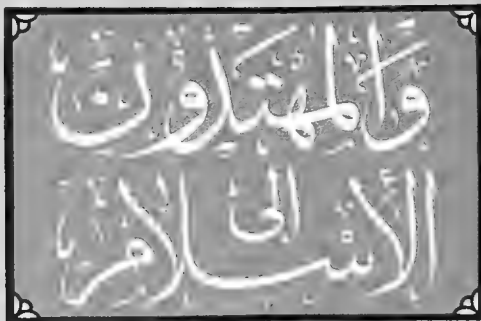 وَالمهتدون
إلى
الإسلام